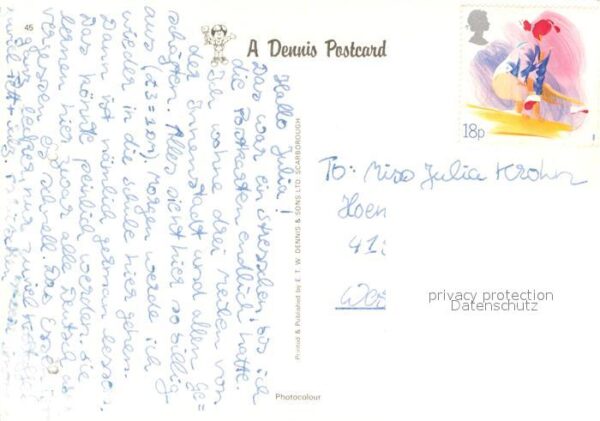 45
A Dennis Postcard
Hallo Julia!
Das war ein Stresschen, bis ich
die Postkarten endlich hatte.
Ich wohne drei Meilen von
der Innenstadt und allen Ge=
schäften. Alles sieht hier so billig
aus (£3=10M). Morgen werde ich
wieder in die Schule hier gehen.
Dann ist nämlich german lesson.
Das könnte peinlich werden. Die
lernen hier zwar alle Deutsch, aber
vergessen es schnell. Das Essen
Printed & Published by E. T. W. DENNIS & SONS LTD. SCARBOROUGH
Photocolour
18p
To: Miss Julia Krohn
Hoen
41
Wer
privacy protection
Datenschutz